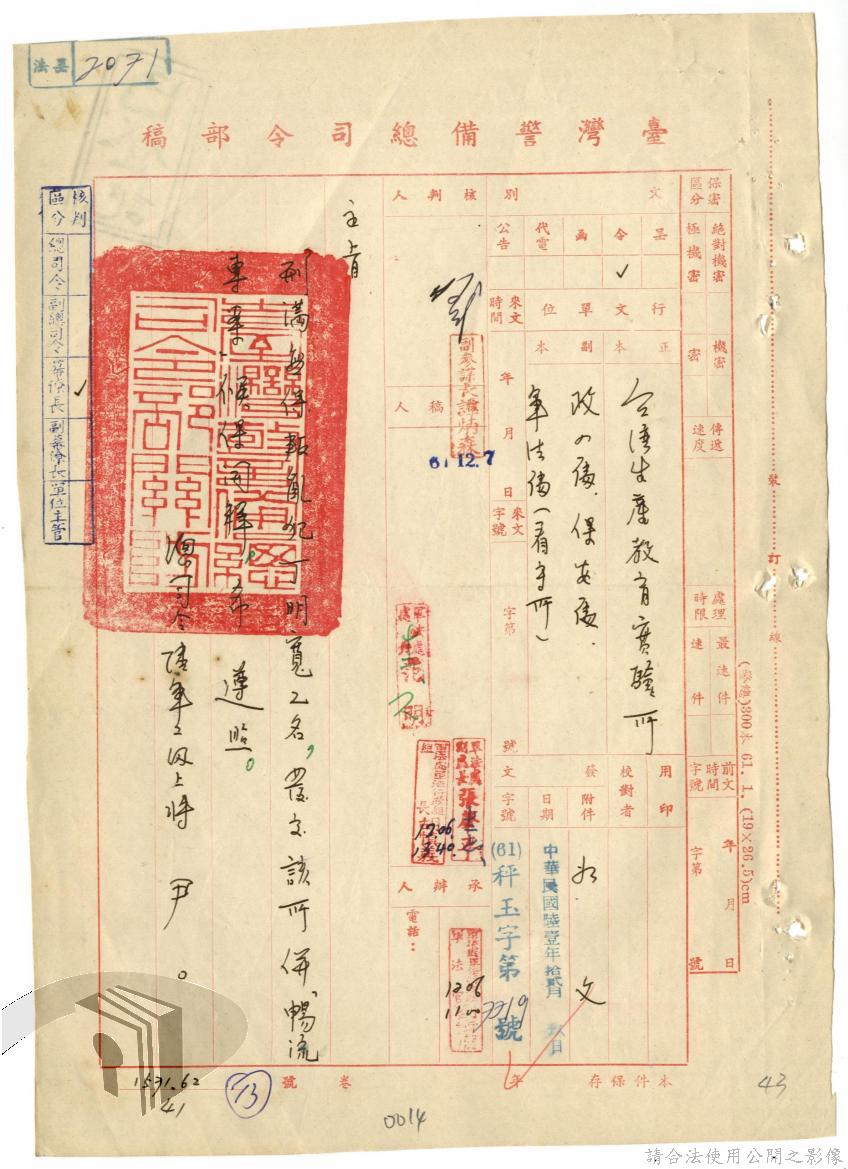 法 呈
2071
臺灣警備總司令部稿
保密區分
絕對機密
極機密
機密
密
傳遞速度
處理時限
最速件
速件
前文時間字號
年 月 日
字第 號
文別
呈
令 ✓
函
代電
公告
行文單位
正本
台灣生產教育實驗所
副本
政四處、保安處、
軍法處(看守所)
來文時間
年 月 日
來文字號
字第 號
用印
校對者
發文
附件
如文
日期
中華民國陸壹年拾貳月 日
字號
(61)秤玉字第7719號
核判人
副參謀長
61.12.7
稿人
承辦人
電話:
軍法處
副處長張
1206
1140
軍法
1206
1100
主旨
刑滿無得叛亂犯丁明寬乙名,發交該所併「暢流
專案」候保開釋,希遵照。
總司令陸軍二級上將 尹 。
核判區分
總司令
副總司令
幕僚長 ✓
副幕僚長
單位主管
裝 訂 線
(參維)300本 61.1.(19×26.5)cm
本件保存 年
卷 號
1571.62
41
13
0014
43
請合法使用公開之影像